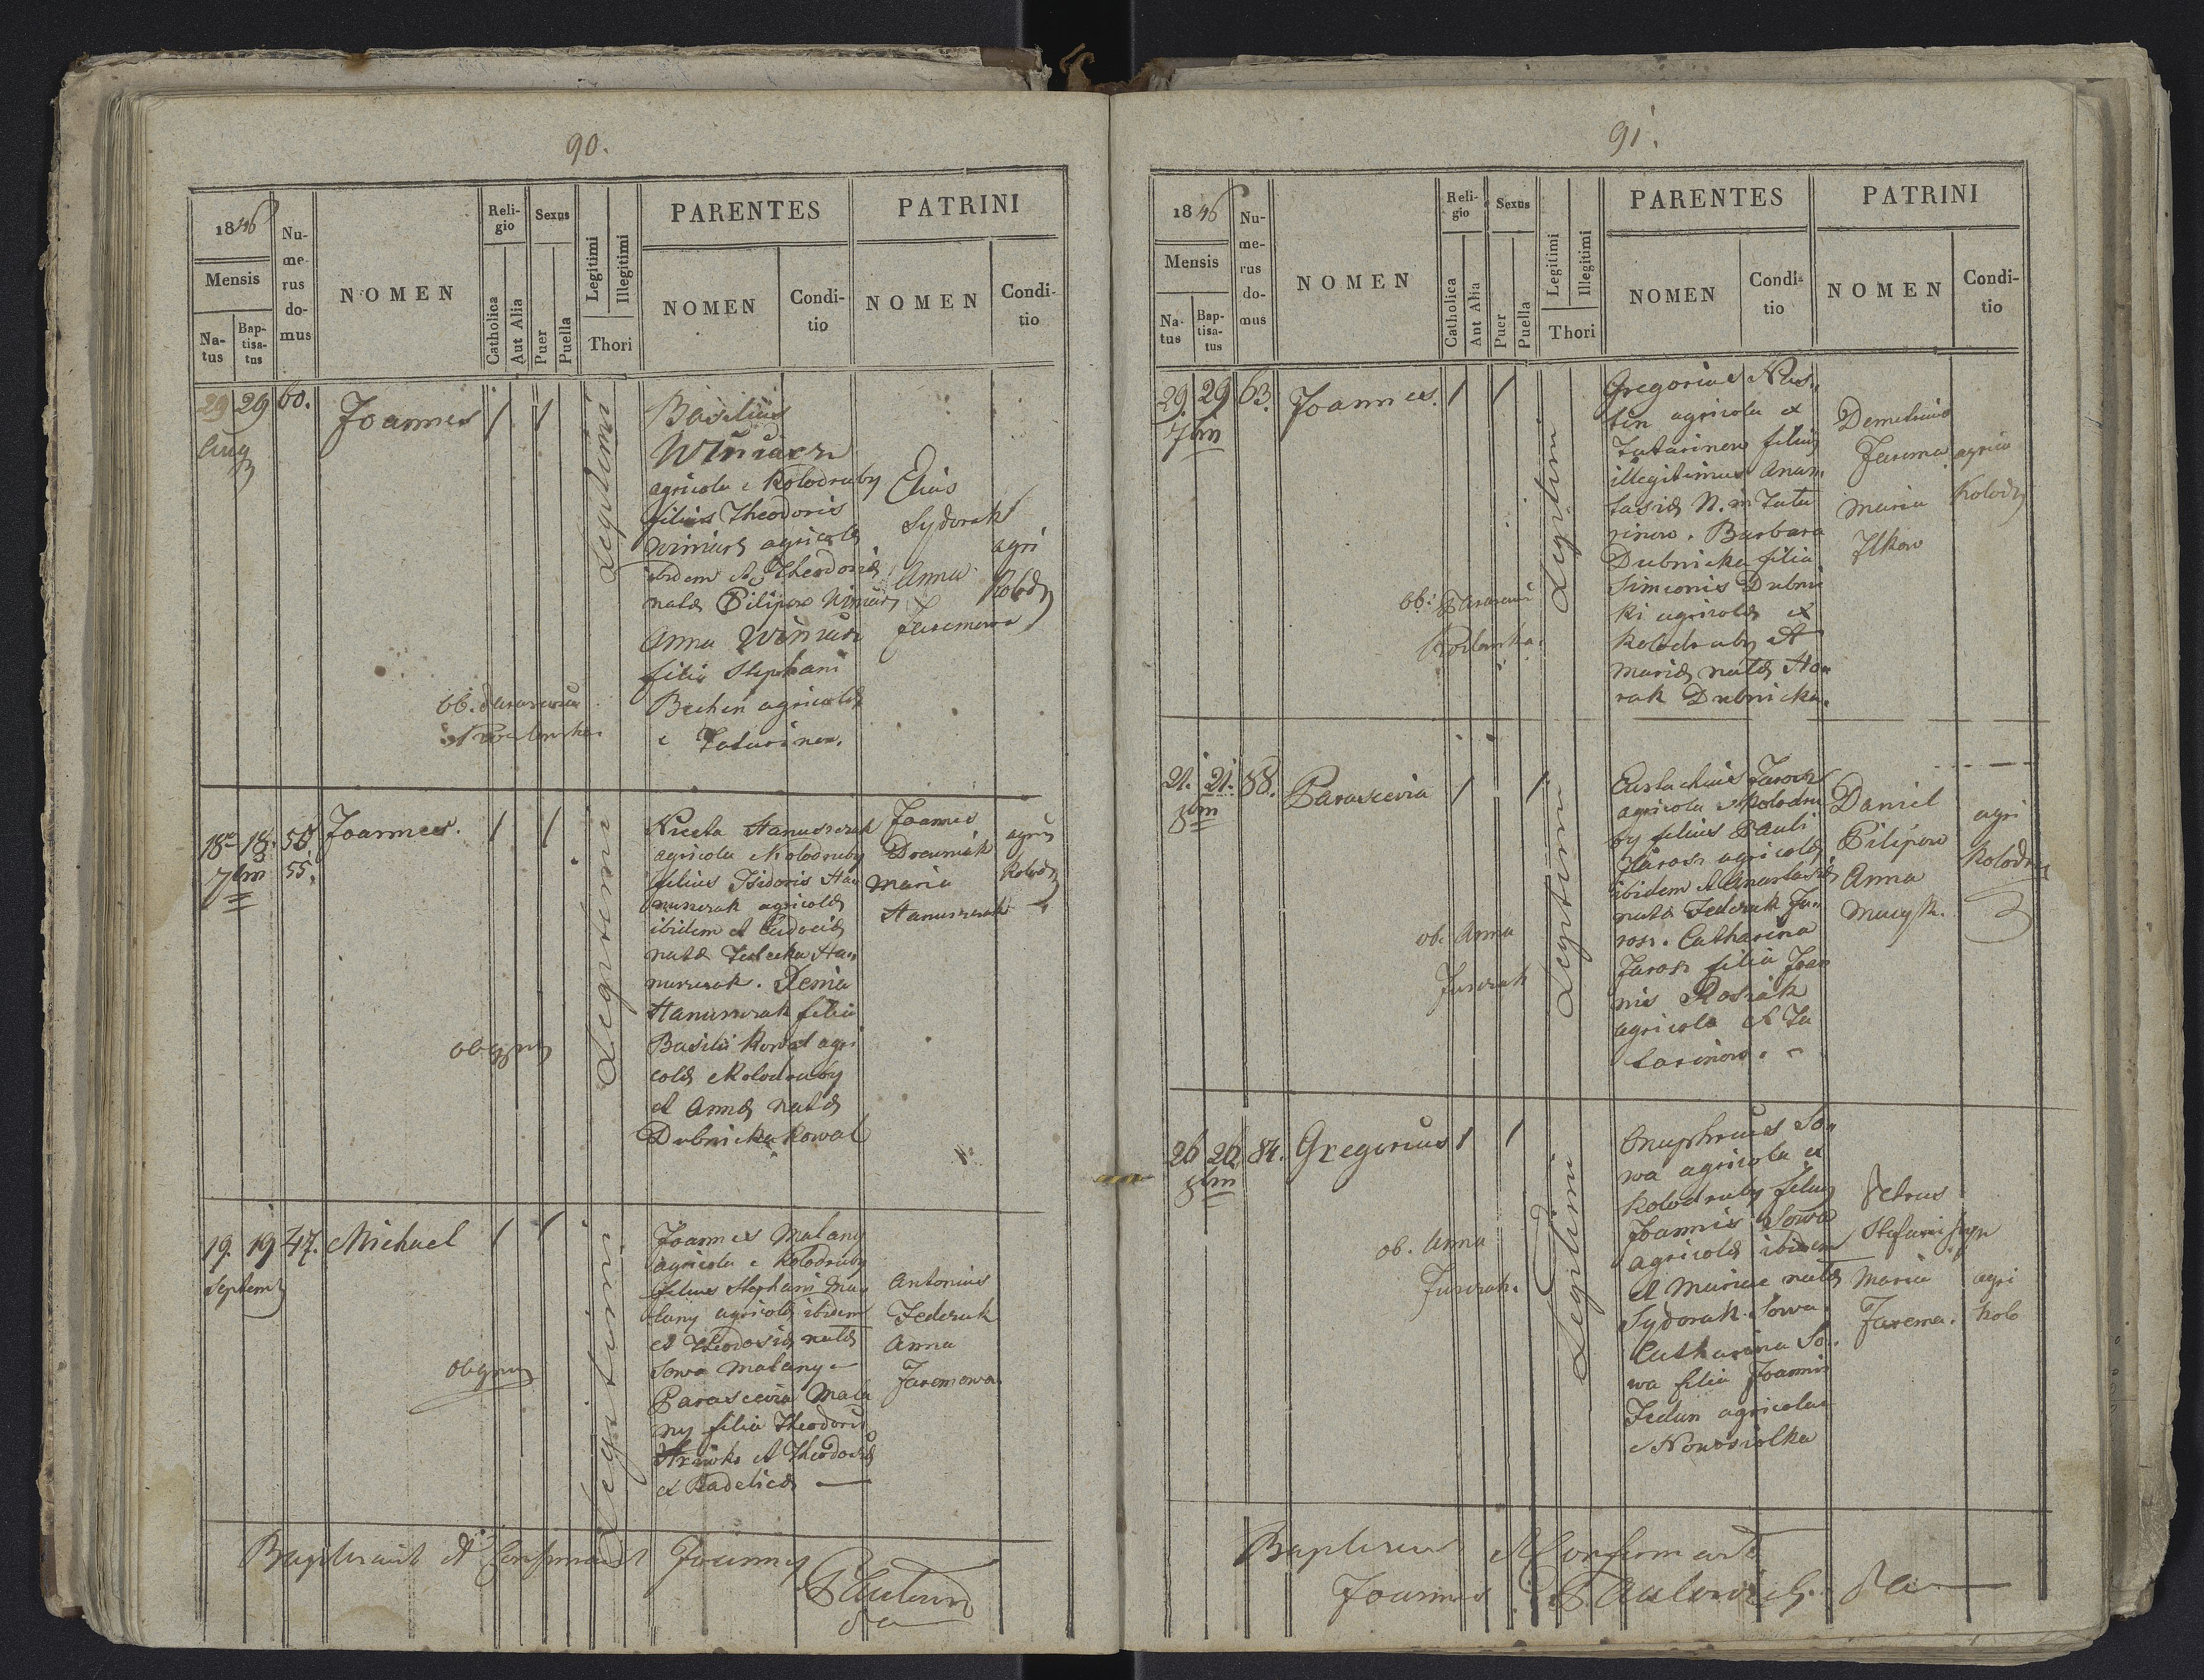 90.
1846
Mensis
Natus
Baptisatus
Numerus domus
NOMEN
Religio
Catholica
Aut Alia
Sexus
Puer
Puella
Legitimi
Illegitimi
Thori
PARENTES
NOMEN
Conditio
PATRINI
NOMEN
Conditio
29 29 60. Joannes 1 1
Aug
Legitimi
Basilius
Winiarz
agricola e Kolodruby
filius Theodoris
Winiarz agricolæ
ibidem et Theodoriæ
natæ Pilipow Winiarz
Anna Winiarz
filia Stephani
agricolæ
e Tatarinow.
Elias
Sydorak
Anna
Jaremowa
agri
Kolodr
ob. Parascevia
18 18. 58 Joannes. 1 1
7bris 55.
Legitimi
Niceta Hanuszczak
agricola e Kolodruby
filius Isidoris Ha
nuszczak agricolæ
ibidem et Eudociæ
natæ Ha
nuszczak. Xenia
Hanuszczak filia
Basilii Kowal agri
colæ e Kolodruby
et Annæ natæ
Dubnicka Kowal
Joannes
Maria
Hanuszczak
Kolodr
19. 19 47. Michael 1 1
Septem
Legitimi
Joannes Malany
agricola e Kolodruby
filius Stephani Ma
lany agricolæ ibidem
et Theodosiæ natæ
Sowa Malany
Parascevia Mala
ny filia Theodoris
et Theodosiæ
ex Radelicæ
Antonius
Federak
Anna
Jaremowa
Baptisavit et Confirmavit Joannes
91.
1846
Mensis
Natus
Baptisatus
Numerus domus
NOMEN
Religio
Catholica
Aut Alia
Sexus
Puer
Puella
Legitimi
Illegitimi
Thori
PARENTES
NOMEN
Conditio
PATRINI
NOMEN
Conditio
29. 29 63. Joannes. 1 1
7bris
Legitimi
Gregorius
agricola ex
Tatarinow filius
illegitimus Anas
tasiæ N. in Tata
rinow. Barbara
Dubnicka filia
Simeonis Dubnic
ki agricolæ ex
Kolodruby et
Mariæ natæ Ho
rak Dubnicka.
Demetrius
Jarema
Maria
Ilkow
Kolodr
ob: Parascevia
21. 21. 88. Parascevia 1 1
8bris
Legitimi
Eustachius Jarosz
agricola e Kolodru
by filius Pauli
Jarosz agricolæ
ibidem et Anastasiæ
natæ Federak Ja
rosz. Catharina
Jarosz filia Joan
nis Rosiak
agricola ex Ta
tarinow.
Daniel
Pilipow
Anna
agri
Kolodru
ob. Anna
Jurczak
26 26 84. Gregorius 1 1
8bris
Legitimi
Onuphrius So
wa agricola ex
Kolodruby filius
Joannis Sowa
agricolæ ibidem
et Mariae natæ
Sydorak Sowa.
Catharina So
wa filia Joannis
Fedun agricolæ
e Nowosiolka
Petrus
Maria
Jarema.
agri
Kolo
ob. Anna
Jurczak.
Baptisavit et Confirmavit
Joannes Paulewicz